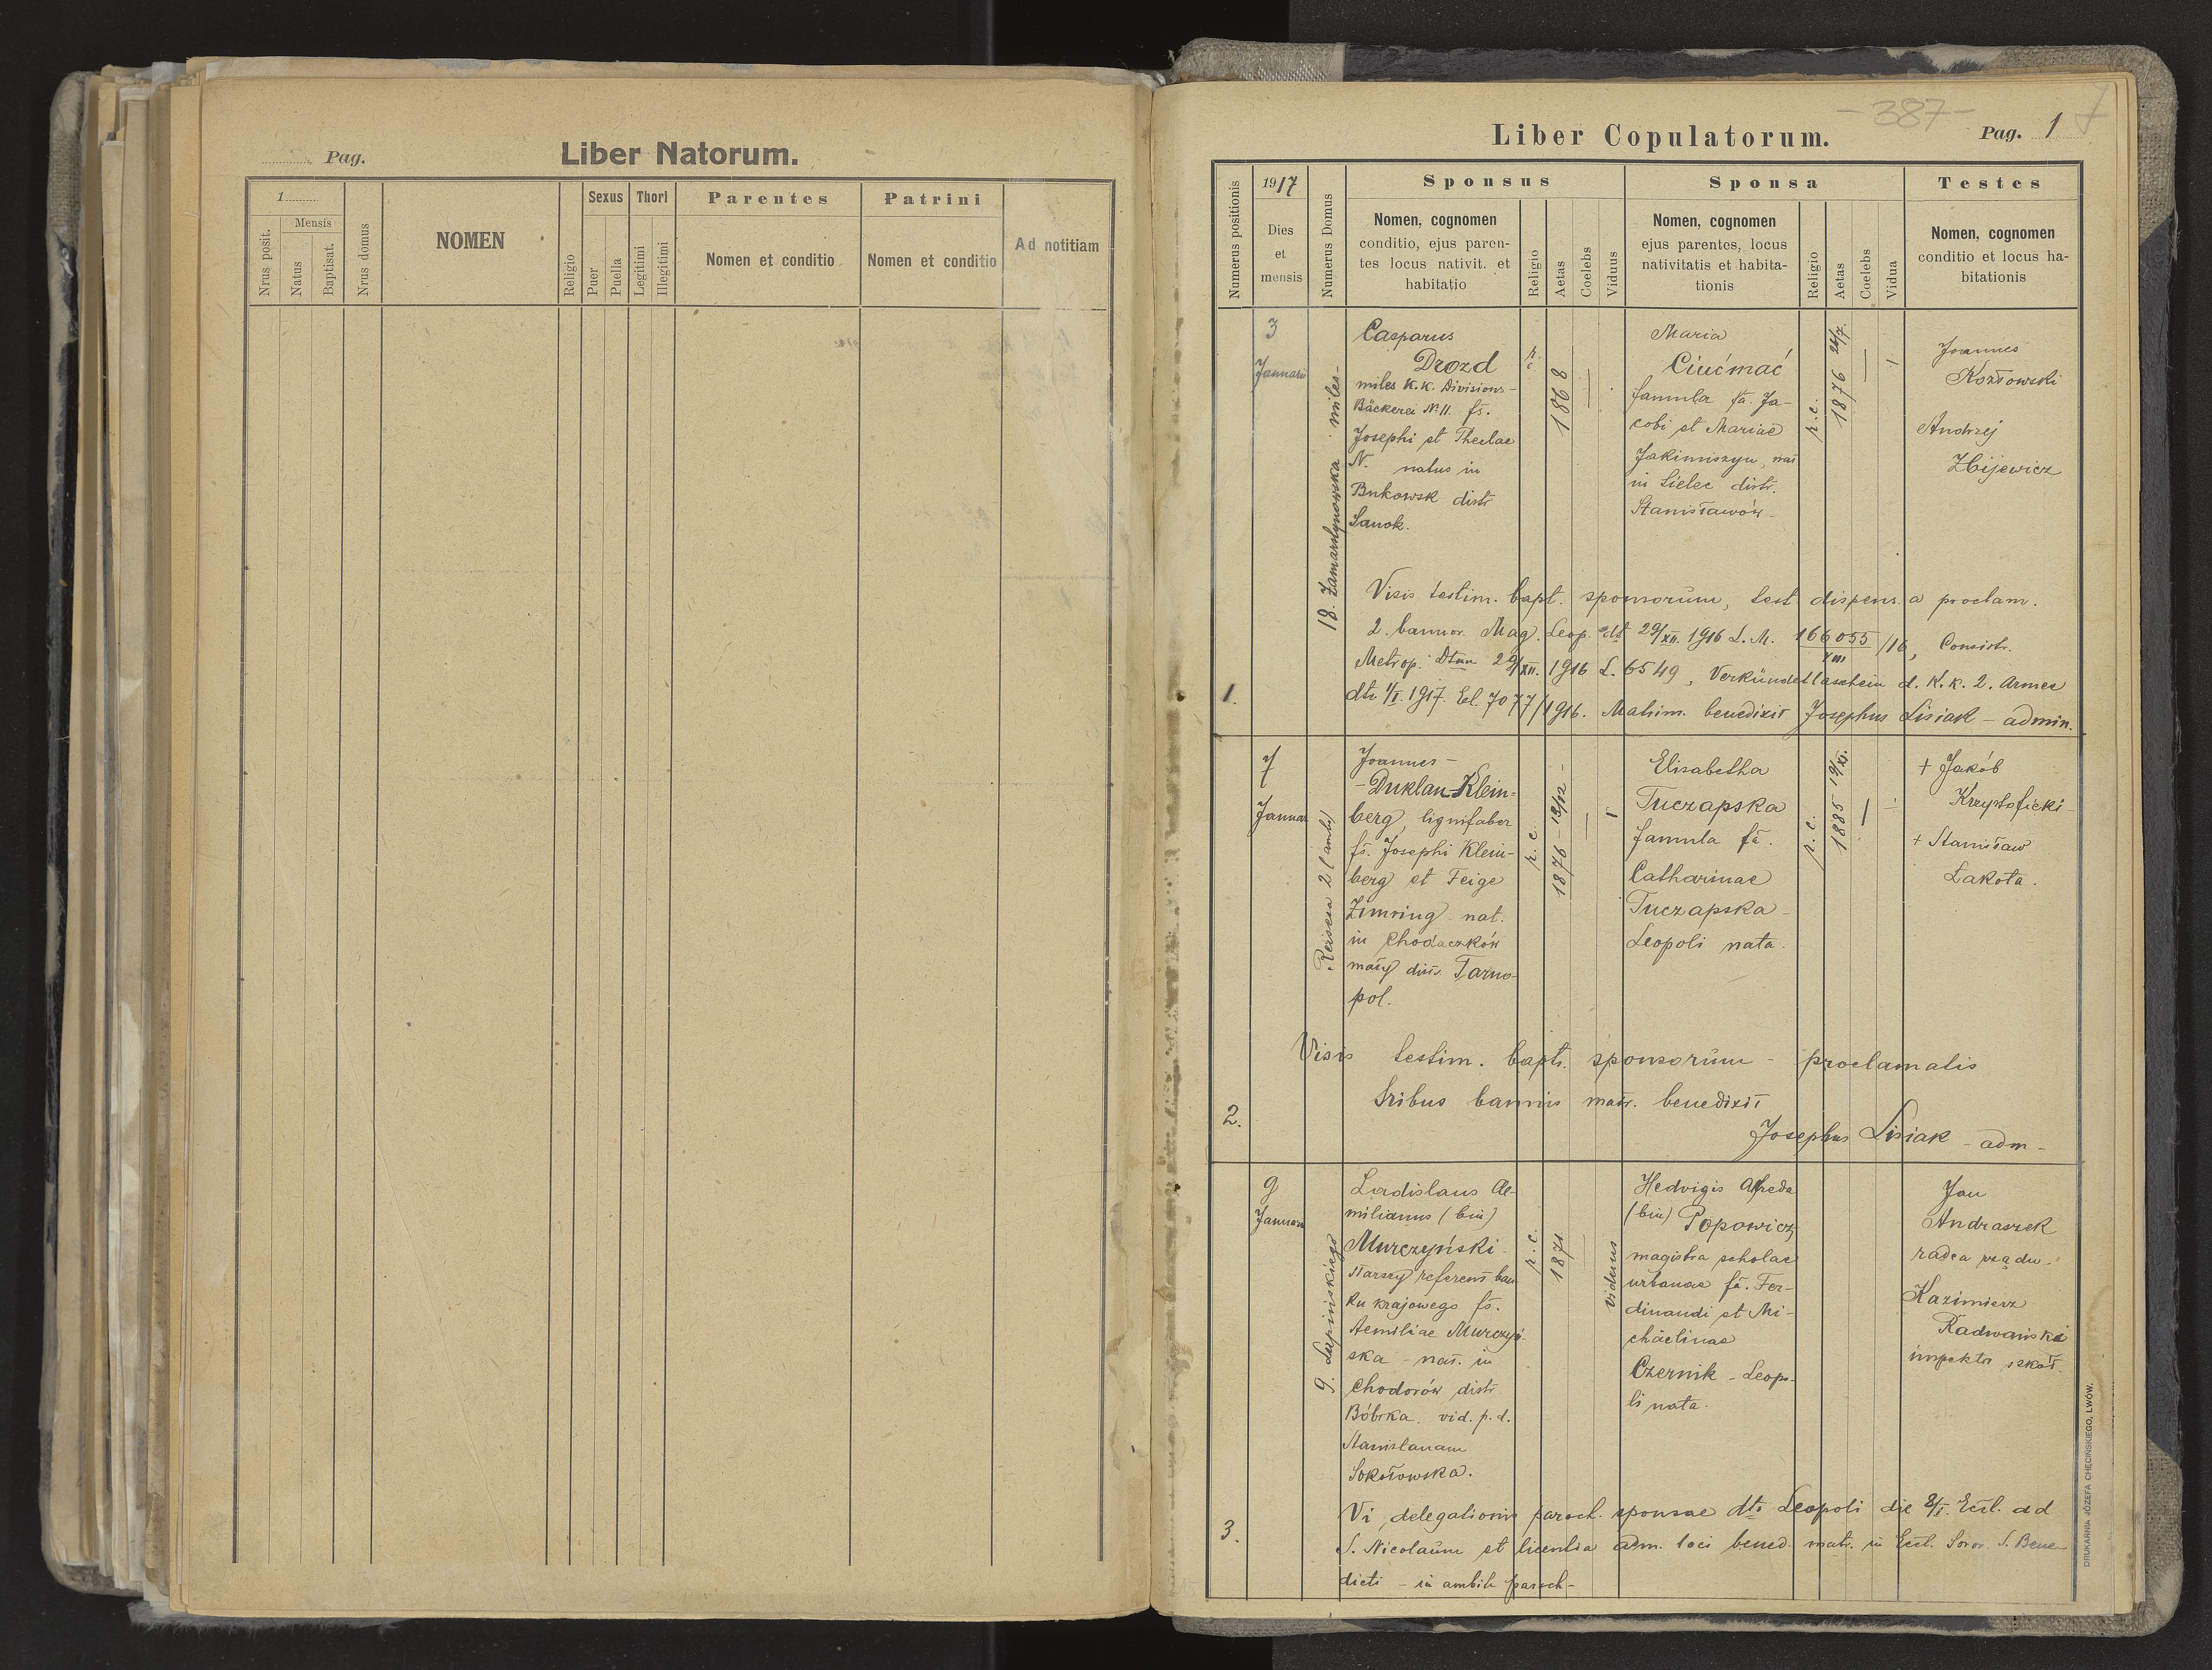 Pag.
Liber Natorum.
1
Nrus posit.
Mensis
Natus
Baptisat.
Nrus domus
NOMEN
Religio
Sexus
Puer
Puella
Thori
Legitimi
Illegitimi
Parentes
Nomen et conditio
Patrini
Nomen et conditio
Ad notitiam
- 387 -
7
Liber Copulatorum.
Pag. 1
Numerus positionis
1917
Dies
et
mensis
Numerus Domus
Sponsus
Nomen, cognomen
conditio, ejus paren-
tes locus nativit. et
habitatio
Religio
Aetas
Coelebs
Viduus
Sponsa
Nomen, cognomen
ejus parentes, locus
nativitatis et habita-
tionis
Religio
Aetas
Coelebs
Vidua
Testes
Nomen, cognomen
conditio et locus ha-
bitationis
1.
3
Januarii
18. Zamarstynowska miles-
Casparus
Drozd
miles K.K. Divisions-
Bäckerei № 11. fs.
Josephi et Theclae
N. natus in
Bukowsk distr
Sanok.
r. c
1868
Maria
Ciućmać
famula fa. Ja-
cobi et Mariae
Jakimiszyn, nat
in Sielec distr.
Stanisławów
r. c.
1876 24/7
Joannes
Kozłowski
Andrzej
Zbijewicz
Visis testim. bapt. sponsorum, test dispens. a proclam.
2. bannor. Mag. Leop. dt 29/XII. 1916 L. M. 166055/XIII /16, Consistr.
Metrop. Dtum 29/XII. 1916 L. 6549, Verkündetlaschein d. K.K. 2. Armee
dtr 1/I. 1917. El. 7077/1916. Matrim. benedixit Josephus Lisiak - admin.
2.
7
Januar
Reisera 2 (ambo)
Joannes -
- Duklan Klein-
berg, lignifaber
fs. Josephi Klein-
berg et Feige
Zimring nat.
in Chodaczków
mały distr. Tarno-
pol.
r. c.
1876 - 13/12 -
Elisabetha
Tuczapska
famula fa.
Catharinae
Tuczapska
Leopoli nata.
r. c.
1885 19/XI.
+ Jakób
Krzysztoficki
+ Stanisław
Łakota.
Visis testim. bapt. sponsorum - proclamatis
tribus bannis matr. benedixit
Josephus Lisiak - adm -
3.
9
Januarii
9. Lupińskiego
Ladislaus Ae-
milianus (bin)
Murczyński
starszy referent ban
ku krajowego fs.
Aemiliae Murczyń
ska - nat. in
Chodorów distr
Bóbrka. vid. p. d.
Stanislauam
Sokołowska.
r. c.
1871
viduus
Hedvigis Alfreda
(bin) Popowicz,
magistra scholae
urbanae fa. Fer-
dinandi et Mi-
chaelinae
Czernik - Leopo-
li nata.
Jan
Andraszek
radca rządu.
Kazimierz
Radwański
inspektor szkół.
Vi delegationis paroch. sponsae dto Leopoli die 8/I. Eccl. ad
S. Nicolaum et licentia adm. loci bened. matr. in Eccl. Soror. S. Bene
dicti - in ambitu paroch -
DRUKARNIA JÓZEFA CHĘCIŃSKIEGO, LWÓW.